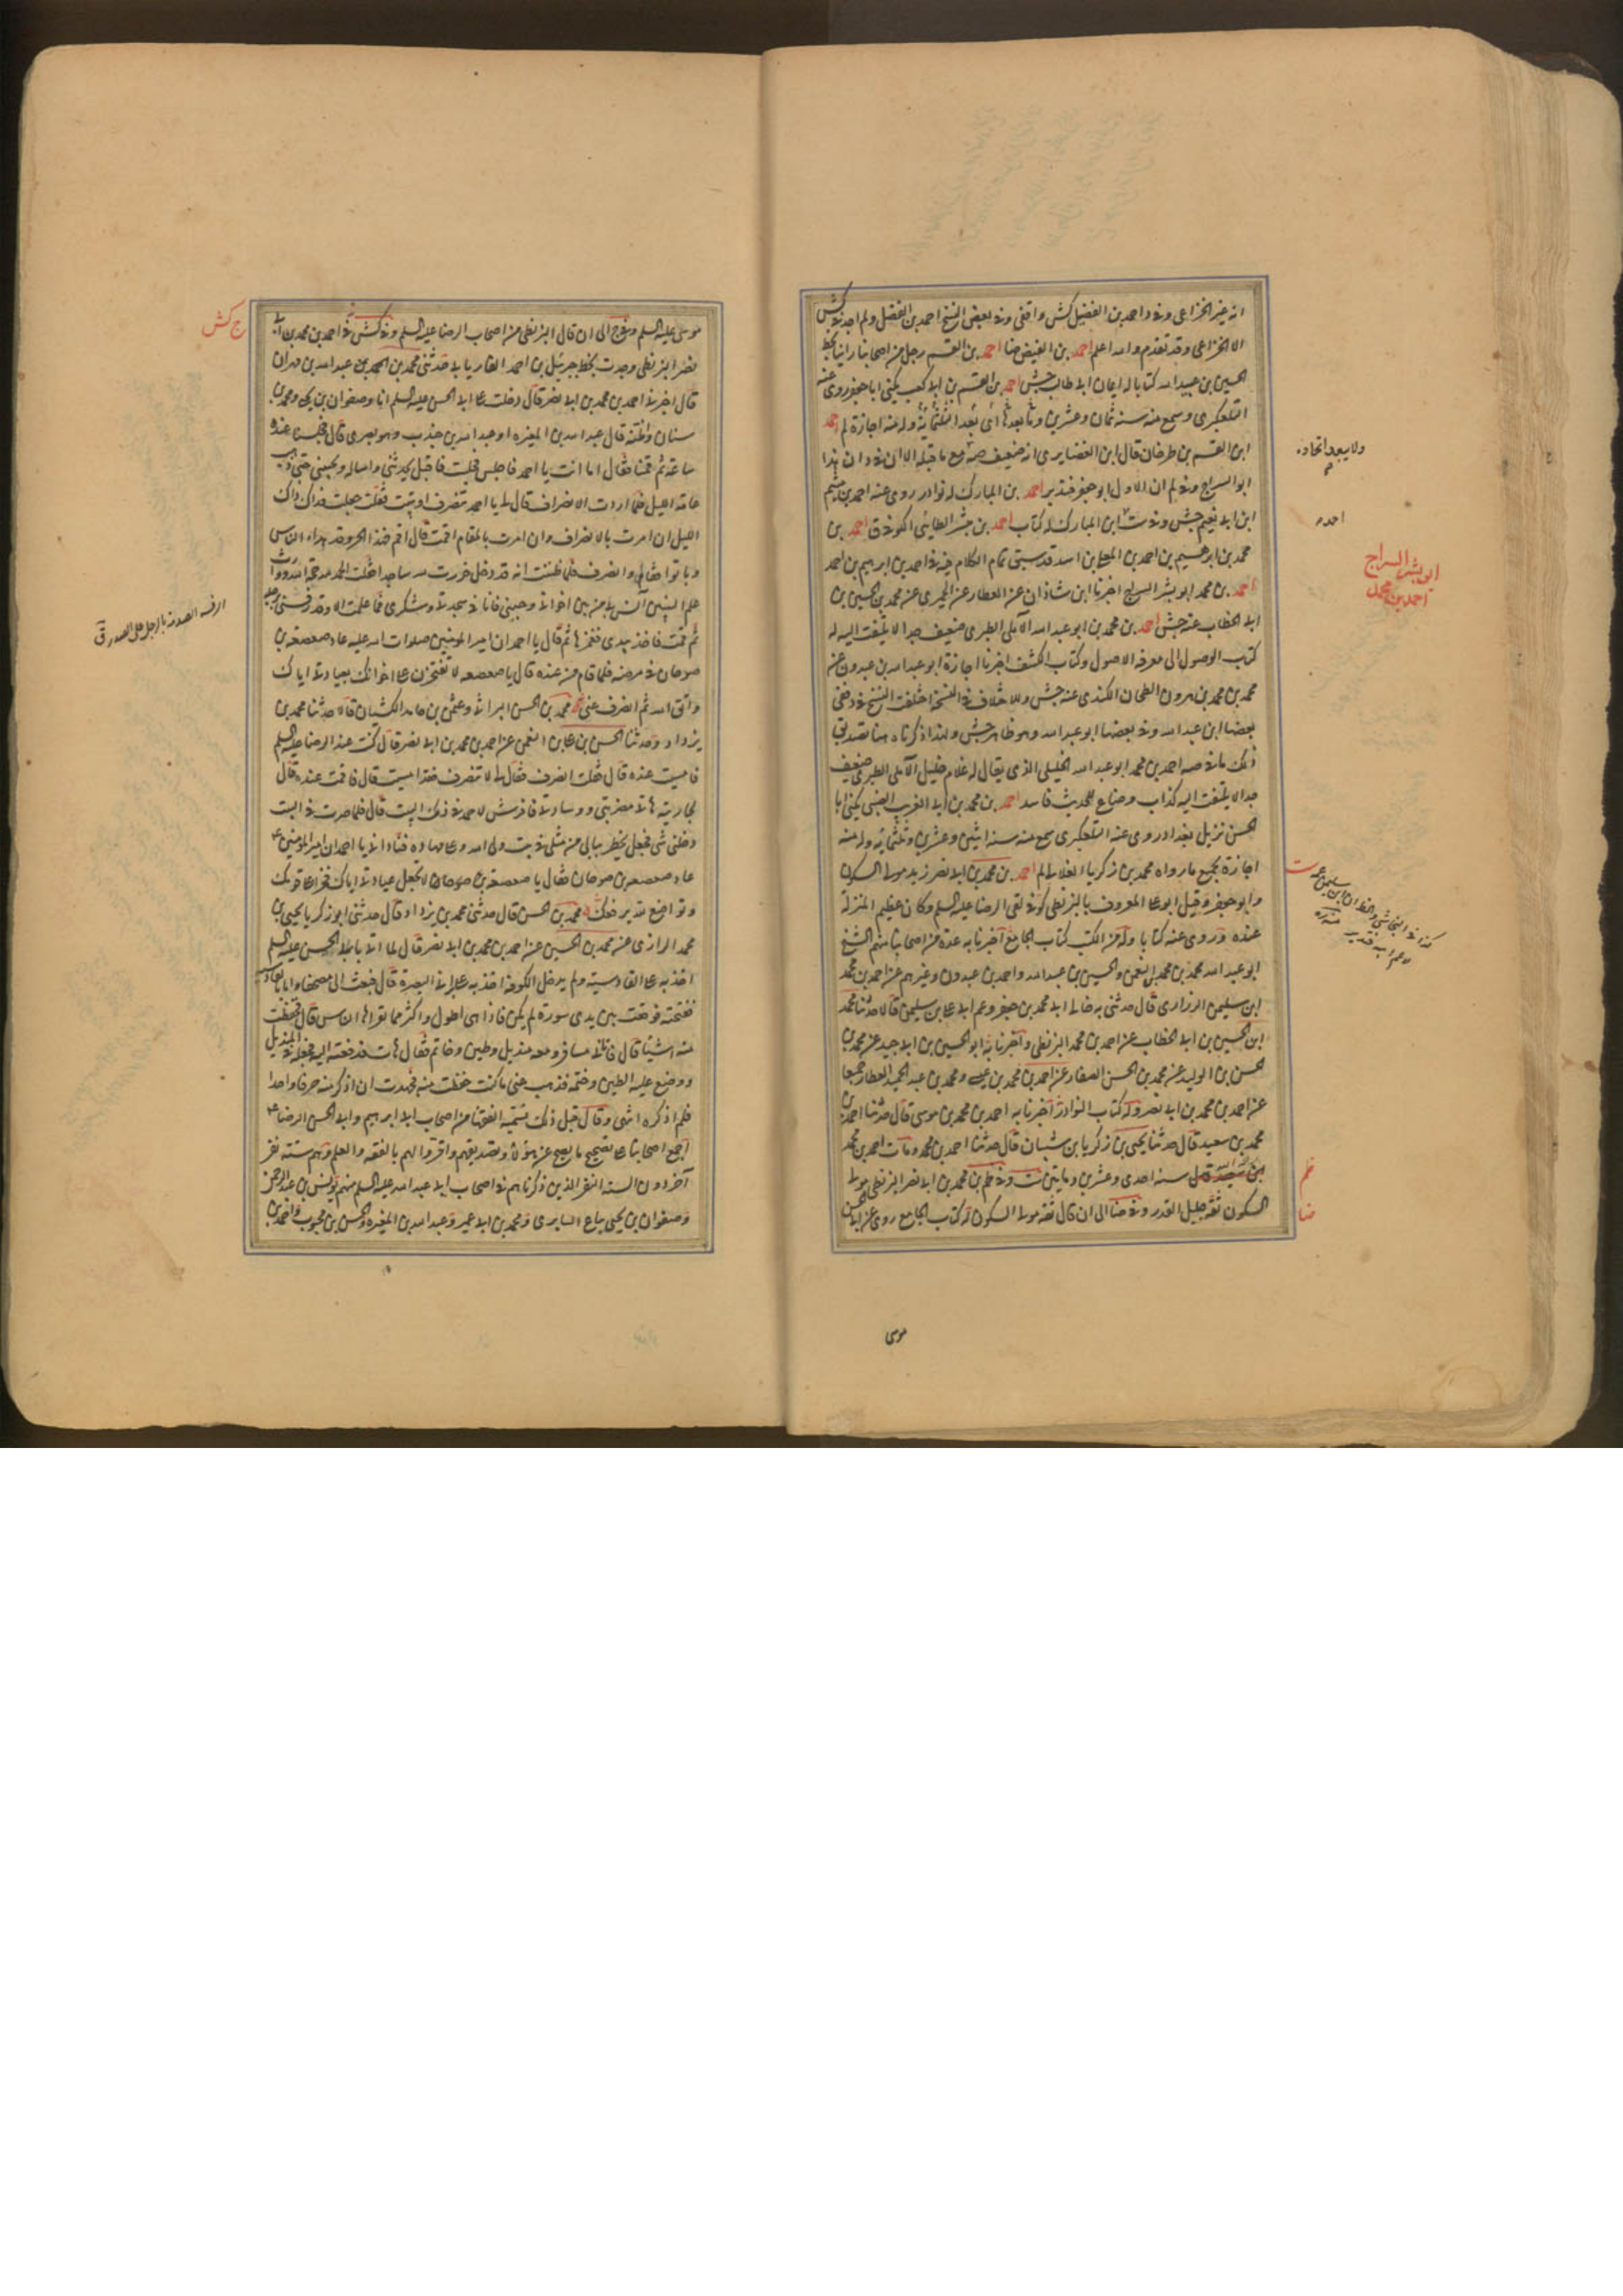 انه غير الخزاعى وفى د احمد بن الفضيل كش واقفى وفى بعض النسخ احمد بن الفضل ولم اجد فى كش
الا الخزاعى وقد تقدم والله اعلم احمد بن الفيض ضا احمد بن القسم رجل من اصحابنا راينا بخط
الحسين بن عبيد الله كتابا له ايمان ابى طالب جش احمد بن القسم بن ابى كعب يكنى ابا جعفر روى عنه
التلعكبرى وسمع منه سنة ثمان وعشرين وما بعدها اى بعد الثلثمائة وله منه اجازة لم احمد
ابن القسم بن طرخان قال ابن الغضايرى انه ضعيف صه مع ما قبله الا ان فى د ان هذا
ابو السراج وفى لم ان الاول ابو جعفر فتدبر احمد بن المبارك له نوادر روى عنه احمد بن ميثم
ابن ابى نعيم جش وفى ست ابن المبارك له كتاب احمد بن بشر الطائى الكوفى ق احمد بن
محمد بن ابرهيم بن احمد بن المعلى بن اسد قد سبق تمام الكلام فيه فى احمد بن ابرهيم بن احمد
احمد بن محمد ابو بشر السراج اخبرنا ابن شاذان عن العطار عن الحميرى عن محمد بن الحسين بن
ابى الخطاب عنه جش احمد بن محمد بن ابو عبد الله الآملى الطبرى ضعيف جدا لا يلتفت اليه له
كتب الوصول الى معرفة الاصول وكتاب الكشف اخبرنا اجازة ابو عبد الله بن عبدون عن
محمد بن محمد بن هرون الطحان الكندى عنه جش ولا خلاف فى النسخ اختلفت النسخ فى دفى
بعضها ابن عبد الله وفى بعضها ابو عبد الله وهو ظاهر جش ولهذا ذكرناه هنا تصديق
ذلك ما فى صه احمد بن محمد ابو عبد الله الخليلى الذى يقال له غلام خليل الآملى الطبرى ضعيف
جدا لا يلتفت اليه كذاب وضاع للحديث فاسد احمد بن محمد بن ابى الغريب الضبى يكنى ابا
الحسن نزيل بغداد روى عنه التلعكبرى سمع منه سنة اثنين وعشرين وثلثمائة وله منه
اجازة بجميع ما رواه محمد بن زكريا الغلابى لم احمد بن محمد بن ابى نصر زيد مولى السكون
وابو جعفر وقيل ابو على المعروف بالبزنطى كوفى لقى الرضا عليه السلم وكان عظيم المنزلة
عنده وروى عنه كتابا وله من الكتب كتاب الجامع اخبرنا به عدة من اصحابنا منهم الشيخ
ابو عبد الله محمد بن محمد بن النعمن والحسين بن عبد الله واحمد بن عبدون وغيرهم عن احمد بن محمد
ابن سليمن الزرارى قال حدثنى به خال ابى محمد بن جعفر وعم ابى على بن سليمن قالا حدثنا محمد
ابن الحسين بن ابى الخطاب عن احمد بن محمد البزنطى واخبرنا به ابو الحسين بن ابى جيد عن محمد بن
الحسن بن الوليد عن محمد بن الحسن الصفار عن احمد بن محمد بن عيسى ومحمد بن عبد الحميد العطار جميعا
عن احمد بن محمد بن ابى نصر وله كتاب النوادر اخبرنا به احمد بن محمد بن موسى قال حدثنا احمد بن
محمد بن سعيد قال حدثنا يحيى بن زكريا بن شيبان قال حدثنا احمد بن محمد ومات احمد بن محمد
سنة احدى وعشرين ومايتين ست وفى ظم بن محمد بن ابى نصر البزنطى مولى
السكون ثقة جليل القدر وفى ضا الى ان قال ثقة مولى السكون له كتاب الجامع روى عن ابى الحسن
ولا يبعد اتحاده
احمد
ابو بشر السراج
احمد بن محمد
ظم
ضا
موسى
موسى عليه السلم وفى ج الى ان قال البزنطى من اصحاب الرضا عليه السلم وفى كش فى احمد بن محمد بن ابى
نصر البزنطى وجدت بخط جبرئيل بن احمد الفاريابى حدثنى محمد بن احمد بن عبد الله بن مهران
قال اخبرنى احمد بن محمد بن ابى نصر قال دخلت على ابى الحسن عليه السلم انا وصفوان بن يحيى ومحمد بن
سنان واظنه قال عبد الله بن المغيرة او عبد الله بن جندب وهو بصرى قال فجلسنا عنده
ساعة ثم قمنا فقال اما انت يا احمد فاجلس فجلست فاقبل يحدثنى واساله ويجيبنى حتى ذهب
عامة الليل فلما اردت الانصراف قال لى يا احمد تنصرف او تبيت فقلت جعلت فداك ذاك
الليل ان امرت بالانصراف وان امرت بالمقام اقمت قال اقم فهذا الحر وقد هدا الناس
وباتوا فقام وانصرف فلما ظننت انه قد دخل خررت لله ساجدا فقلت الحمد لله حجة الله ووارث
علم النبيين انس بى من بين اخوانى وحببنى فانا فى سجدتى وشكرى فما علمت الا وقد رفسنى برجله
ثم قمت فاخذ بيدى فغمزها ثم قال يا احمد ان امير المومنين صلوات الله عليه عاد صعصعة بن
صوحان فى مرضه فلما قام من عنده قال يا صعصعة لا تفتخرن على اخوانك بعيادتى اياك
واتق الله ثم انصرف عنى محمد بن الحسن البراثى وعثمن بن حامد الكشيان قالا حدثنا محمد بن
يزداد وحدثنا الحسن بن على بن النعمن عن احمد بن محمد بن ابى نصر قال كنت عند الرضا عليه السلم
فامسيت عنده قال فقلت انصرف فقال لى لا تنصرف فقد امسيت قال فاقمت عنده قال
لجاريته هاتى مضربتى ووسادتى فافرشى لاحمد فى ذلك البيت قال فلما صرت فى البيت
دخلنى شى فجعل يخطر ببالى من مثلى فى بيت ولى الله وعلى مهاده فنادانى يا احمد ان امير المومنين ع
عاد صعصعة بن صوحان فقال يا صعصعة بن صوحان لا تجعل عيادتى اياك فخرا على قومك
وتواضع لله يرفعك محمد بن الحسن قال حدثنى محمد بن يزداد قال حدثنى ابو زكريا يحيى بن
محمد الرازى عن محمد بن الحسين عن احمد بن محمد بن ابى نصر قال لما اتى بابى الحسن عليه السلم
اخذ به على القادسية ولم يدخل الكوفة اخذ به على برانى البصرة قال فبعث الى مصحفا وانا بالقادسية
ففتحته فوقعت بين يدى سورة لم يكن فاذا هى اطول واكثر مما يقراها الناس قال فحفظت
منه اشيا قال فاتانى مسافر ومعه منديل وطين وخاتم فقال هات فدفعته اليه فجعله فى المنديل
ووضع عليه الطين وختمه فذهب عنى ما كنت حفظت منه فجهدت ان اذكر منه حرفا واحدا
فلم اذكره انتهى وقال قبل ذلك تسمية الفقها من اصحاب ابى ابرهيم وابى الحسن الرضا ع
اجمع اصحابنا على تصحيح ما يصح عن هؤلا وتصديقهم واقروا لهم بالفقه والعلم وهم ستة نفر
آخر دون الستة النفر الذين ذكرناهم فى اصحاب ابى عبد الله عليه السلم منهم يونس بن عبد الرحمن
وصفوان بن يحيى بياع السابرى ومحمد بن ابى عمير وعبد الله بن المغيرة والحسن بن محبوب واحمد بن
ج كش